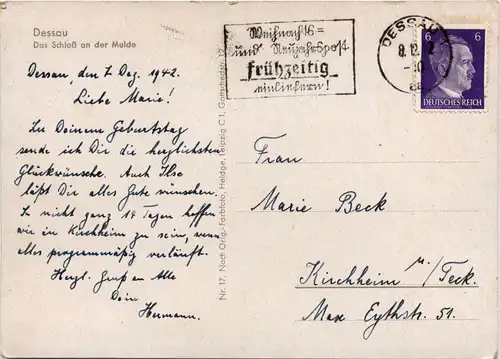 Dessau
Das Schloß an der Mulde
Dessau, den 7. Dez. 1942.
Liebe Marie!
Zu Deinem Geburtstag
sende ich Dir die herzlichsten
Glückwünsche. Auch Ilse
läßt Dir alles Gute wünschen.
In nicht ganz 14 Tagen hoffen
wir in Kirchheim zu sein, wenn
alles programmäßig verläuft.
Herzl. Gruß an Alle
Dein
Hermann.
Nr. 17. Nach Orig.-Farbfoto, Heldge, Leipzig C 1, Gottschedstr. 12
Weihnachts=
und Neujahrspost
frühzeitig
einliefern!
DESSAU
8.12.
6 6
DEUTSCHES REICH
Frau
Marie Beck
Kirchheim u/Teck.
Max Eythstr. 51.